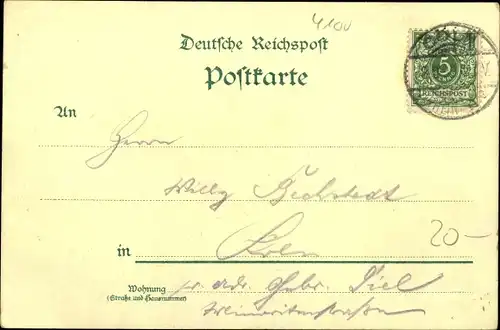 4100
Deutsche Reichspost
Postkarte
5
REICHSPOST
An
Herrn
Willy Bechstedt
20–
in Köln
Wohnung
(Straße und Hausnummer)
p. adr. Gebr. Diel
Minoritenstraße